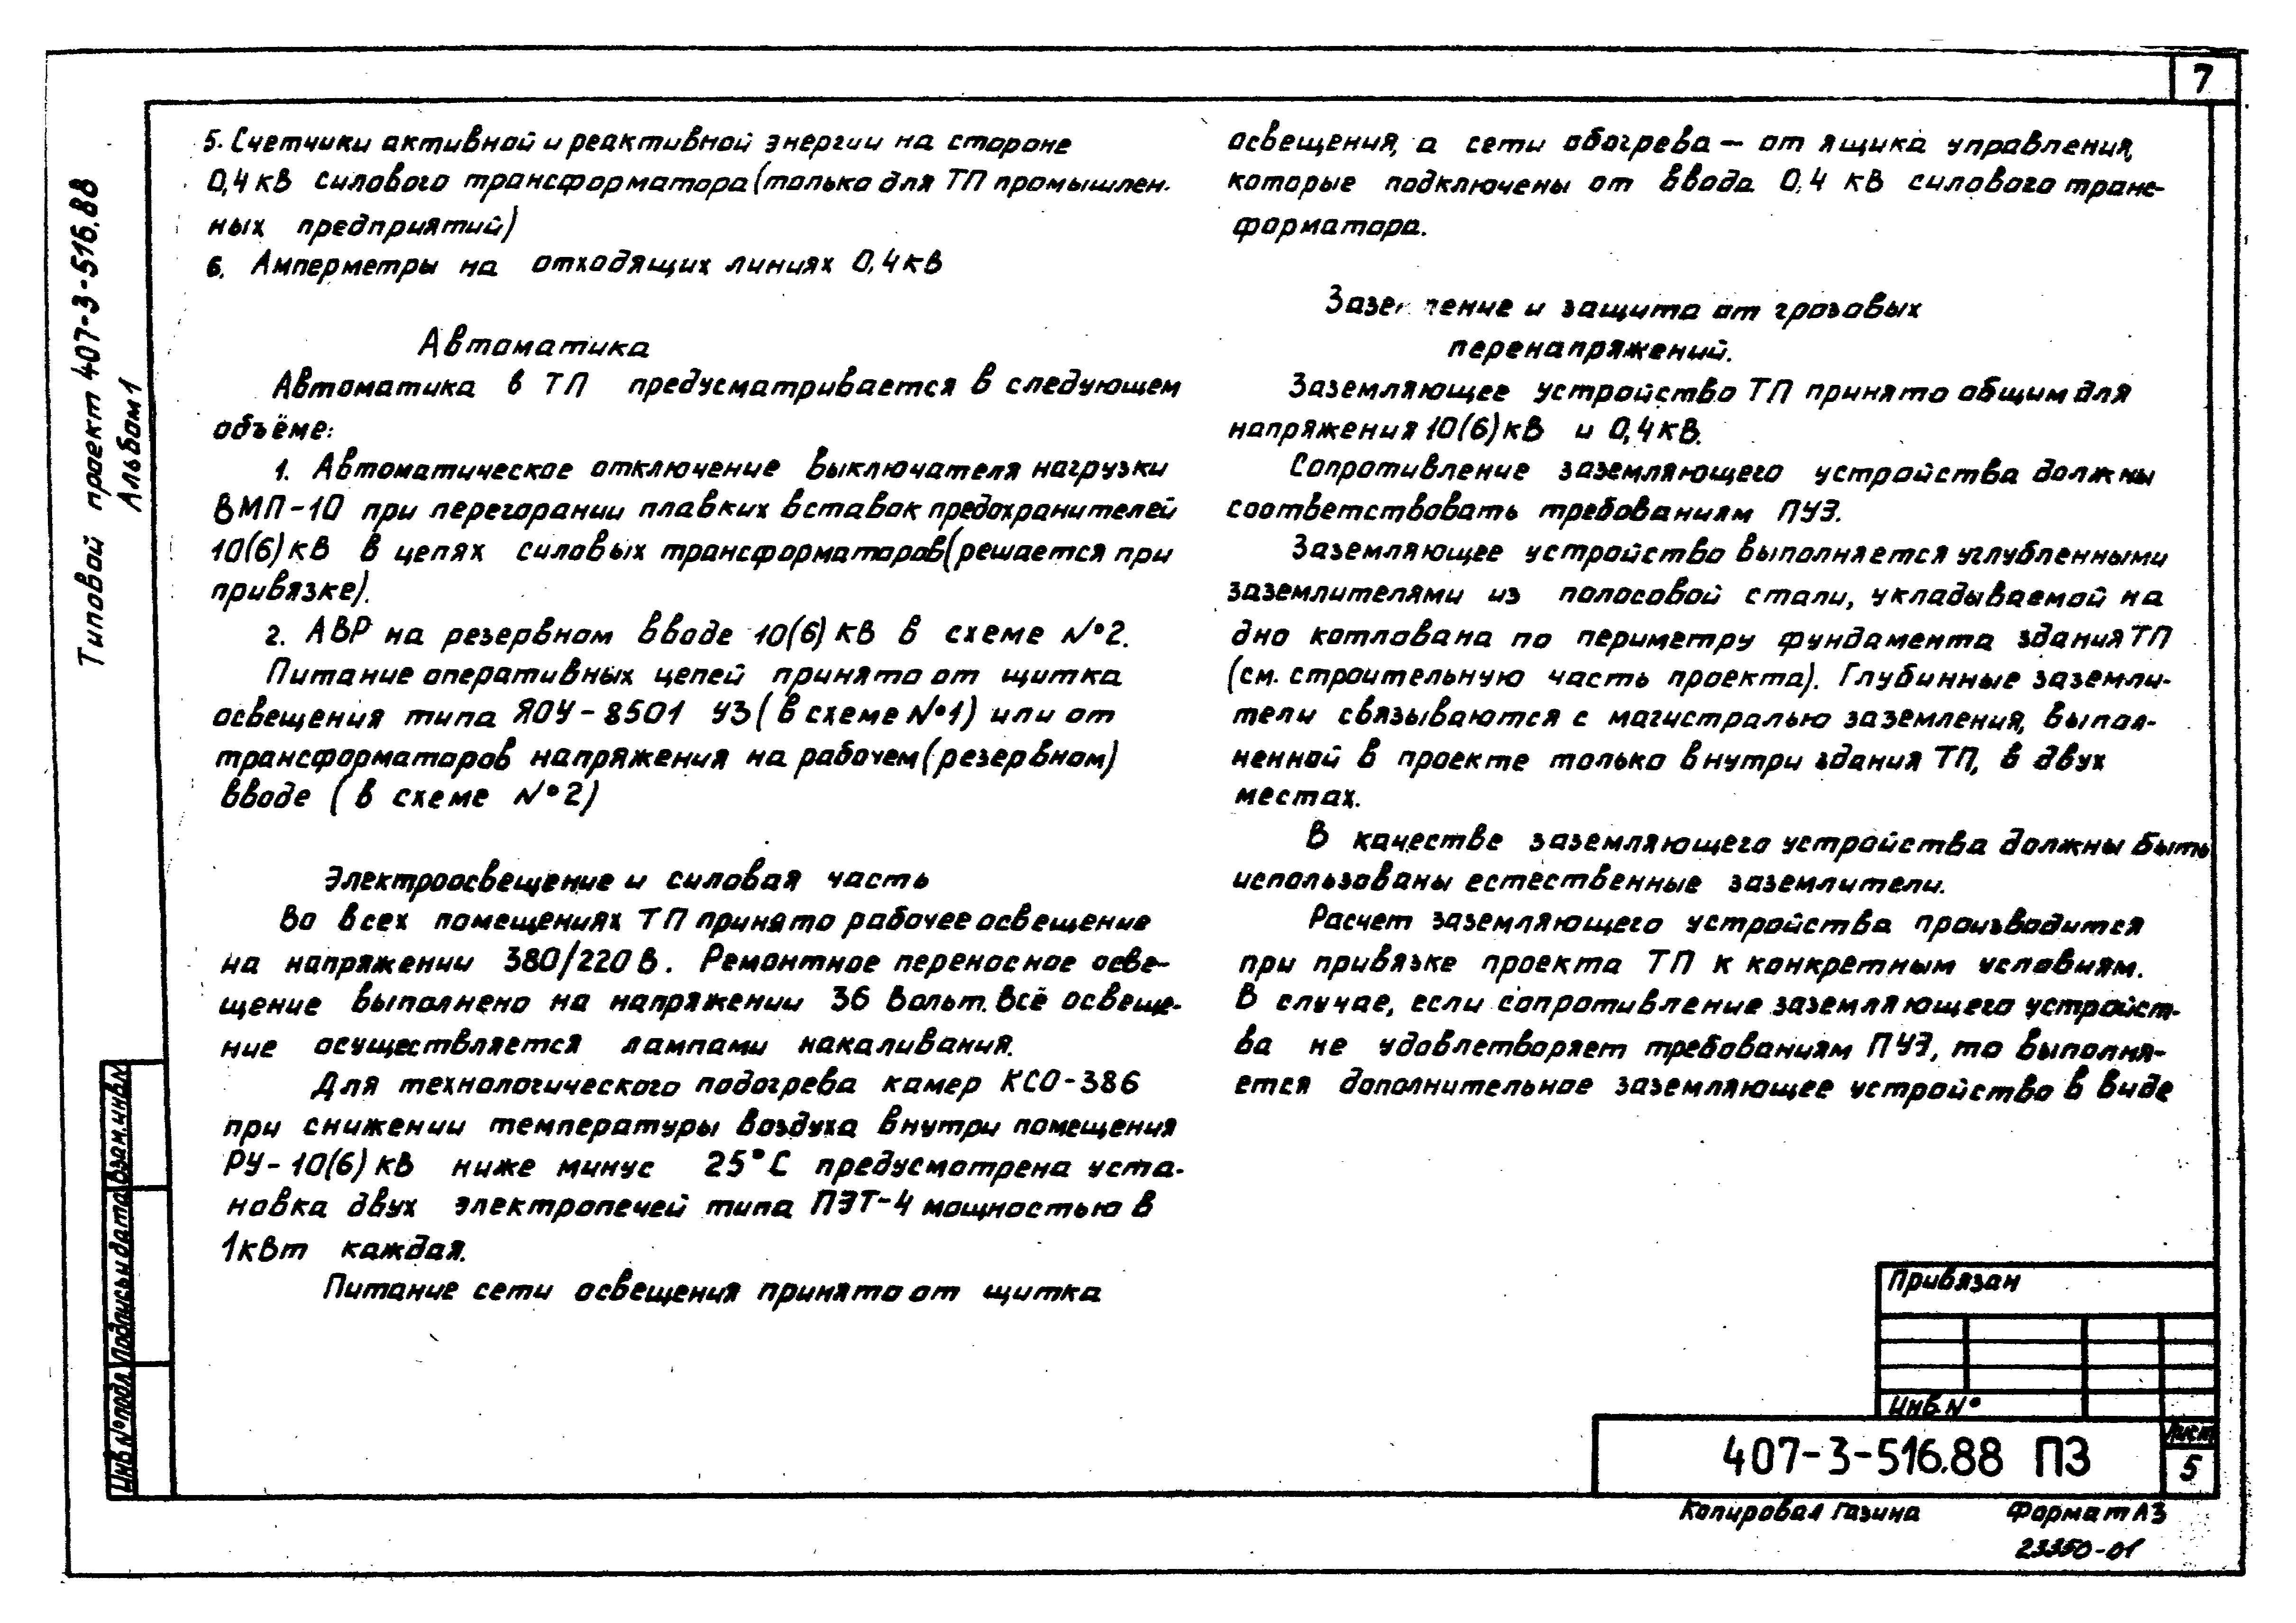 7
Типовой проект 407-3-516.88
Альбом 1
5. Счетчики активной и реактивной энергии на стороне
0,4 кВ силового трансформатора (только для ТП промышлен-
ных предприятий)
6. Амперметры на отходящих линиях 0,4 кВ
Автоматика
Автоматика в ТП предусматривается в следующем
объёме:
1. Автоматическое отключение выключателя нагрузки
ВМП-10 при перегорании плавких вставок предохранителей
10(6) кВ в цепях силовых трансформаторов (решается при
привязке).
2. АВР на резервном вводе 10(6) кВ в схеме №2.
Питание оперативных цепей принято от щитка
освещения типа ЯОУ-8501 У3 (в схеме №1) или от
трансформаторов напряжения на рабочем (резервном)
вводе (в схеме №2)
Электроосвещение и силовая часть
Во всех помещениях ТП принято рабочее освещение
на напряжении 380/220 В. Ремонтное переносное осве-
щение выполнено на напряжении 36 Вольт. Всё освеще-
ние осуществляется лампами накаливания.
Для технологического подогрева камер КСО-386
при снижении температуры воздуха внутри помещения
РУ-10(6) кВ ниже минус 25°С предусмотрена уста-
новка двух электропечей типа ПЭТ-4 мощностью в
1 кВт каждая.
Питание сети освещения принято от щитка
освещения, а сети обогрева — от ящика управления,
которые подключены от ввода 0,4 кВ силового транс-
форматора.
Зазе ление и защита от грозовых
перенапряжений.
Заземляющее устройство ТП принято общим для
напряжения 10(6) кВ и 0,4 кВ.
Сопротивление заземляющего устройства должны
соответствовать требованиям ПУЭ.
Заземляющее устройство выполняется углубленными
заземлителями из полосовой стали, укладываемой на
дно котлована по периметру фундамента здания ТП
(см. строительную часть проекта). Глубинные заземли-
тели связываются с магистралью заземления, выпол-
ненной в проекте только внутри здания ТП, в двух
местах.
В качестве заземляющего устройства должны быть
использованы естественные заземлители.
Расчет заземляющего устройства производится
при привязке проекта ТП к конкретным условиям.
В случае, если сопротивление заземляющего устройст-
ва не удовлетворяет требованиям ПУЭ, то выполня-
ется дополнительное заземляющее устройство в виде
Взам. инв. №
Подпись и дата
Инв. № подл.
Привязан
Инв. №
407-3-516.88 ПЗ
Лист
5
Копировал Газина
Формат А3
23350-01